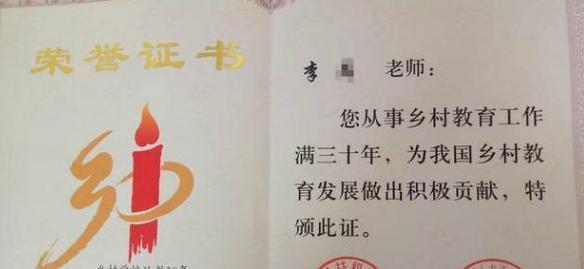 荣誉证书
李 老师：
您从事乡村教育工作
满三十年，为我国乡村教
育发展做出积极贡献，特
颁此证。